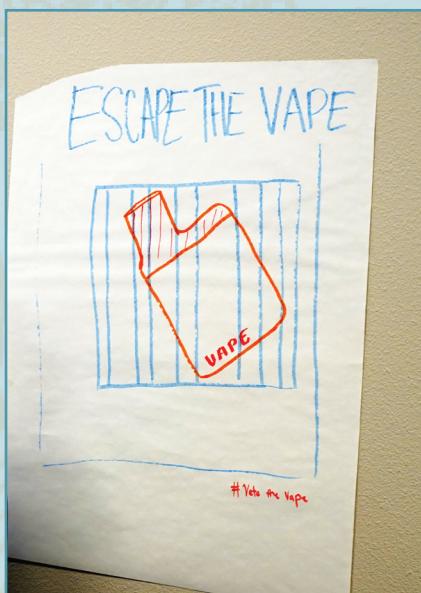 ESCAPE THE VAPE
VAPE
# Veto the Vape